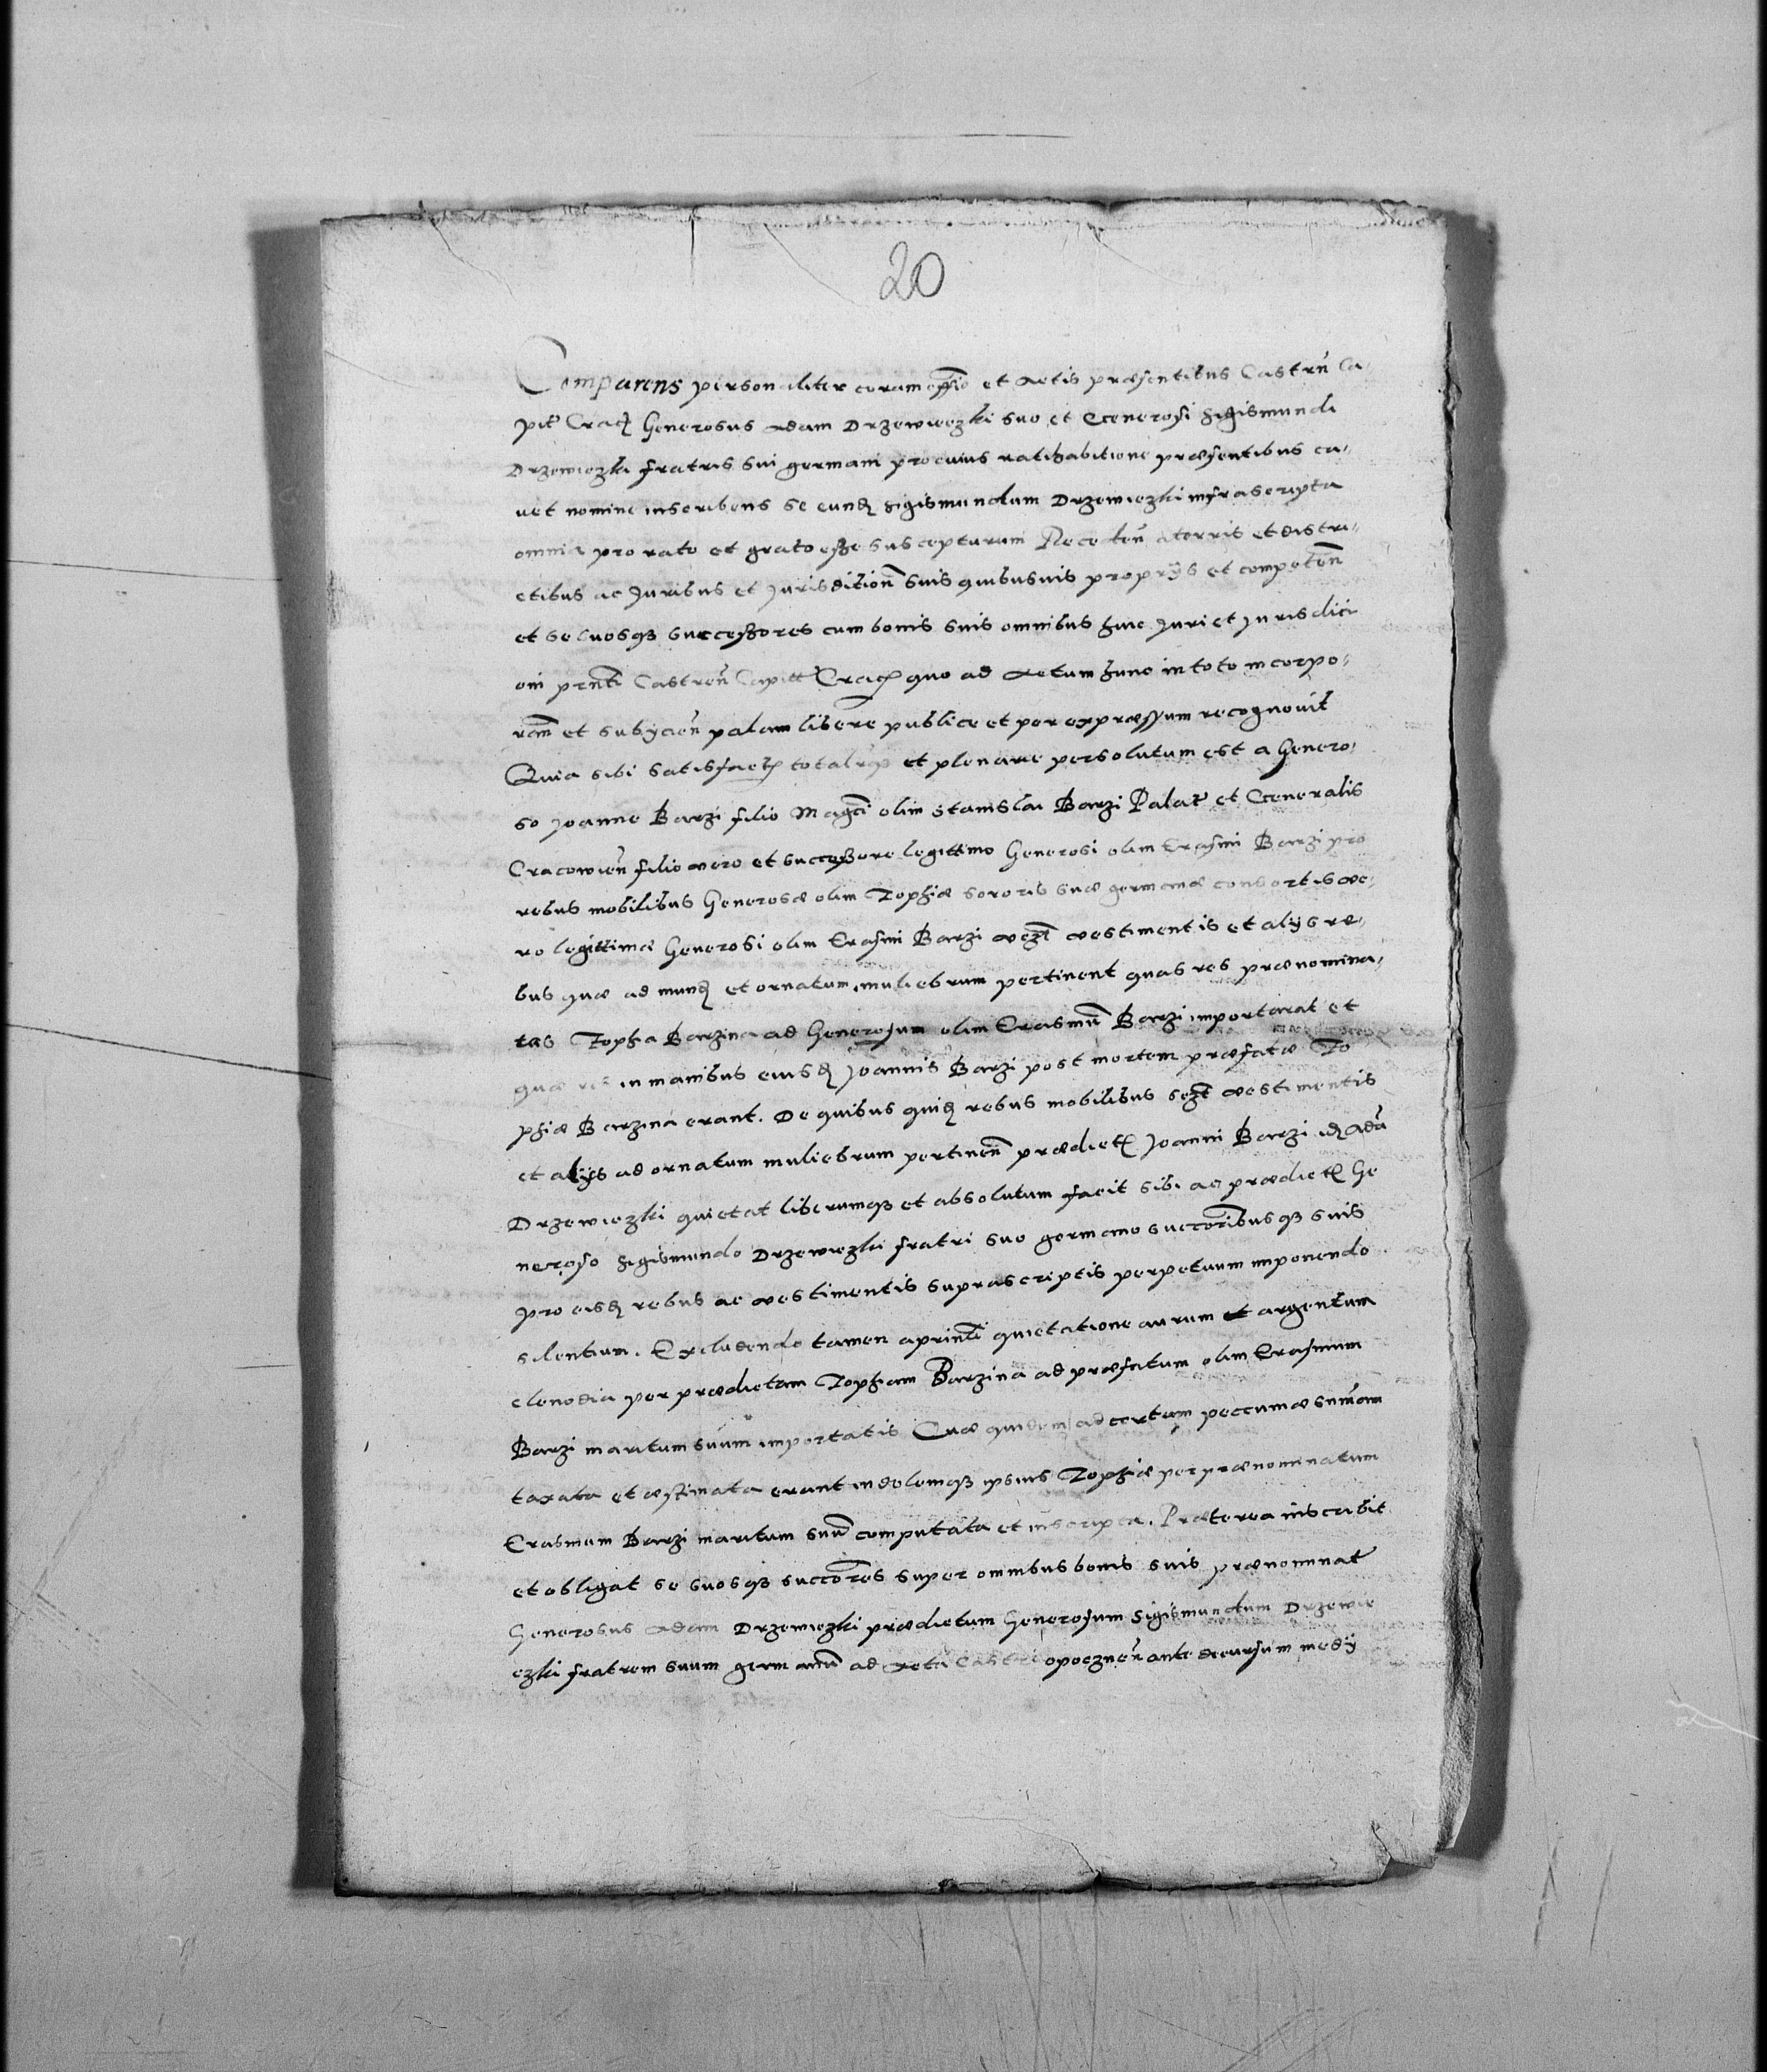 20
Comparens personaliter coram offio et Actis præsentibus Castrn Ca-
pit Crac Generosus Adam Drzewieczki suo et Generosi Sigismundi
Drzewieczki fratris sui germani pro cuius ratihabitione præsentibus ca-
uet nomine inscribens se eund Sigismundum Drzewieczki infrascripta
omnia pro rato et grato esse suscepturum Receden a terris et distri-
ctibus ac Juribus et Jurisdition suis quibusuis proprijs et competen
et se suosq successores cum bonis suis omnibus huic Juri et Jurisdici
oni prnti Castren Capitt Crac quo ad Actum hunc in toto incorpo-
ran et subijcien palam libere publice et per expressum recognouit
Quia sibi satisfact totaliterq et plenarie persolutum est a Genero-
so Joanne Barzi filio Magci olim Stanislai Barzi Palat et Generalis
Cracowien filio vero et successore legittimo Generosi olim Erasmi Barzi pro
rebus mobilibus Generosæ olim Zophiæ sororis suæ germanæ consortis ve-
ro legittimæ Generosi olim Erasmi Barzi vezt vestimentis et alijs re-
bus quæ ad mund et ornatum muliebrum pertinent quas res prænomina-
tas Zophia Barzina ad Generosum olim Erasmu Barzi importarat et
quæ res in manibus eiusd Joannis Barzi post mortem præfatæ Zo
phiæ Barzina erant. De quibus quid rebus mobilibus sczt vestimentis
et alijs ad ornatum muliebrum pertinen prædict Joanni Barzi id Ada
Drzewieczki quietat liberumq et absolutum facit sibi ac prædict Ge
neroso Sigismundo Drzewieczki fratri suo germano succoribusq suis
pro eisd rebus ac vestimentis suprascriptis perpetuum imponendo
silentium. Excludendo tamen a printi quietatione aurum et argentum
clenodia per prædictam Zophiam Barzina ad præfatum olim Erasmum
Barzi maritum suum importatis Quæ quidem ad certam peccuniæ sumam
taxata et æstimata erant in dotemq ipsius Zophiæ per prænominatum
Erasmum Barzi maritum suu computata et inscripta. Præterea inscribit
et obligat se suosq succores super omnibus bonis suis prænominat
Generosus Adam Drzewieczki prædictum Generosum Sigismundum Drzewie
czki fratrem suum germanu ad Acta Castri opocznen ante decursum medij